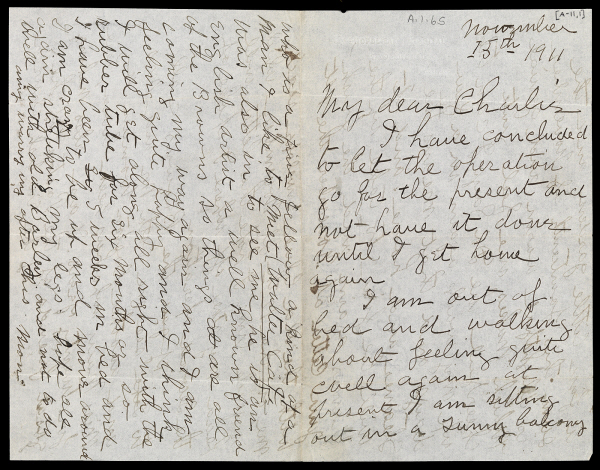 A.1.65
[A-11,1]
November
15th 1911
My dear Charlie
I have concluded
to let the operation
go for the present and
not have it done
until I get home
again
I am out of
bed and walking
about feeling quite
well again at
present I am sitting
out in a sunny balcony
who is a fine fellow, a kind of a
man I like to met Walter
was also in to see me he is an
English artist a well known friend
of the Browns so things are all
coming my way again and I am
feeling quite happy and I think
I will get along all right with the
rubber tube for six months or so.
I have been 5 weeks in bed and
I am crazy to be up and move around
again stretching my legs.
well with old and not to do
any worrying after this.